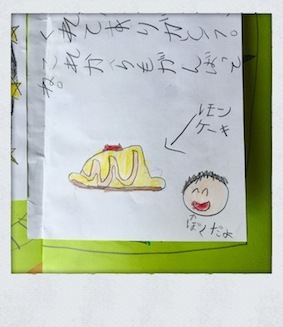 くれてありがとう。
これからもがんばって
ね。
レモン
ケーキ
ぼくだよ